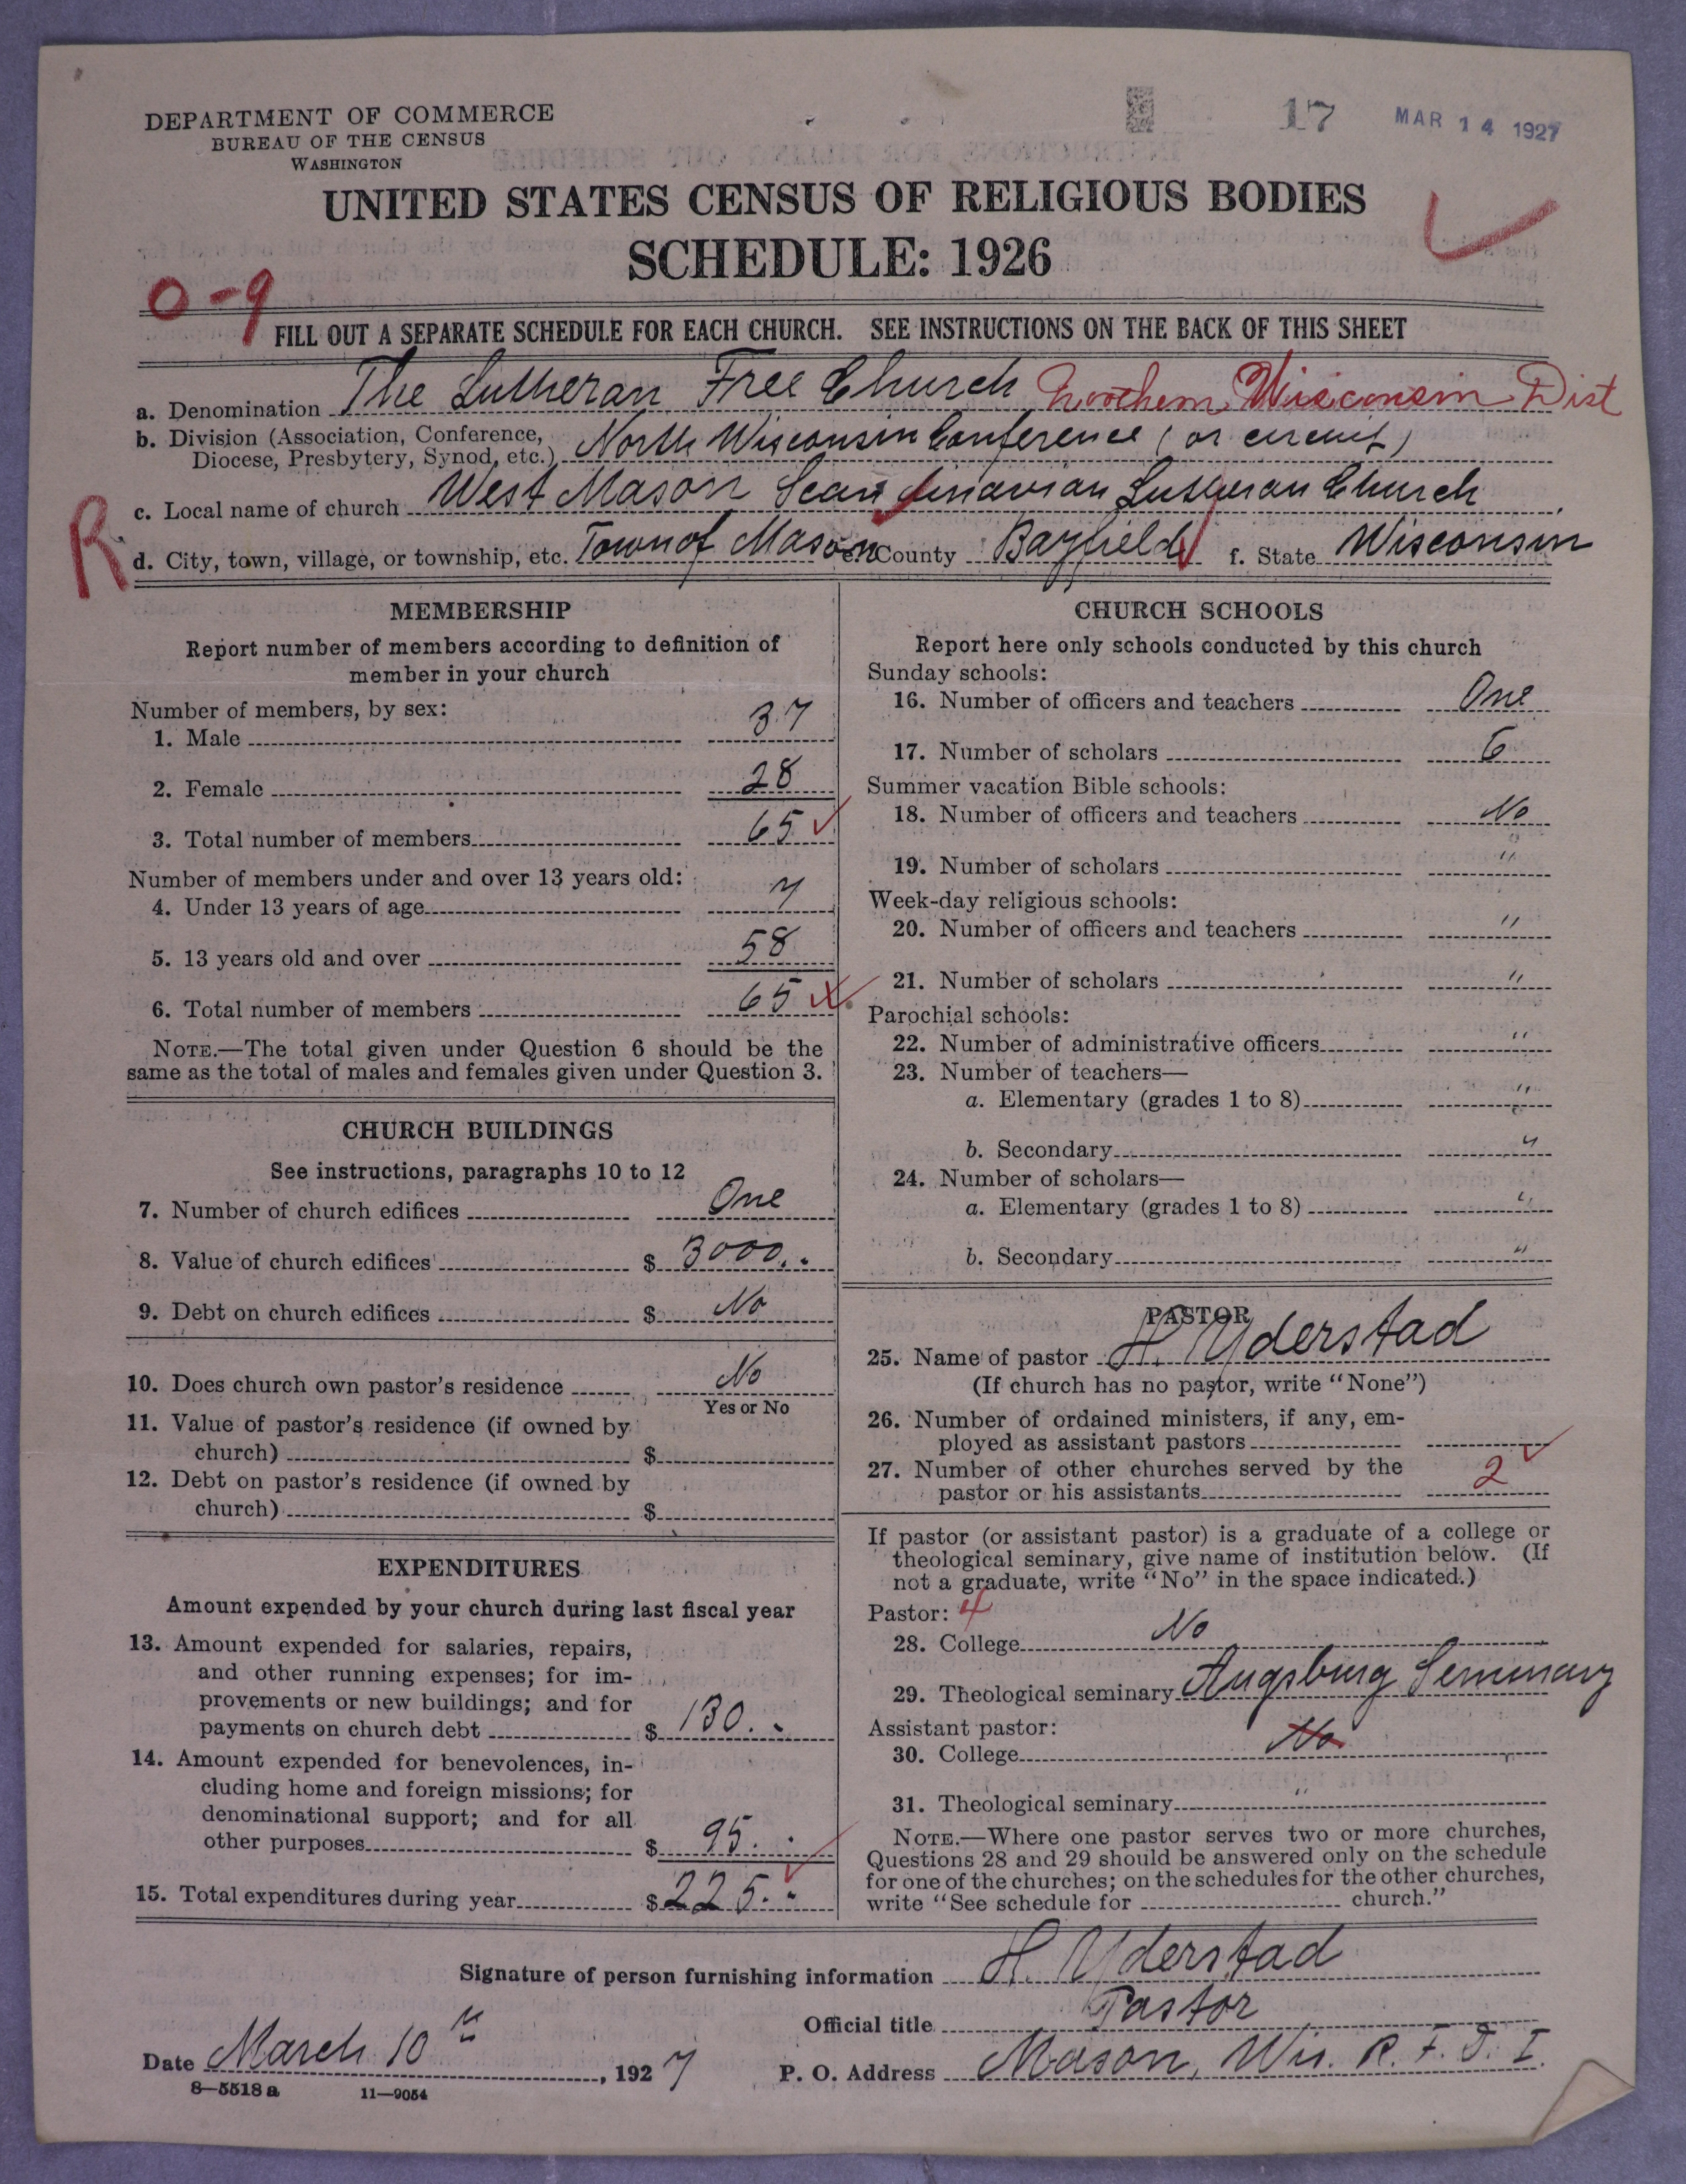 DEPARTMENT OF COMMERCE
BUREAU OF THE CENSUS
WASHINGTON
17 MAR 14 1927
UNITED STATES CENSUS OF RELIGIOUS BODIES
SCHEDULE: 1926
0-9
FILL OUT A SEPARATE SCHEDULE FOR EACH CHURCH. SEE INSTRUCTIONS ON THE BACK OF THIS SHEET
a. Denomination The Lutheran Free Church Northern Wisconsin Dist
b. Division (Association, Conference,
Diocese, Presbytery, Synod, etc.) North Wisconsin Conference (or circuit)
c. Local name of church West Mason Scandinavian Lutheran Church
R
d. City, town, village, or township, etc. Town of Mason e. County Bayfield f. State Wisconsin
MEMBERSHIP
Report number of members according to definition of
member in your church
Number of members, by sex:
1. Male 37
2. Female 28
3. Total number of members 65
Number of members under and over 13 years old:
4. Under 13 years of age 7
5. 13 years old and over 58
6. Total number of members 65
NOTE.—The total given under Question 6 should be the
same as the total of males and females given under Question 3.
CHURCH BUILDINGS
See instructions, paragraphs 10 to 12
7. Number of church edifices One
8. Value of church edifices $ 3000.-
9. Debt on church edifices $ No
10. Does church own pastor's residence No
Yes or No
11. Value of pastor's residence (if owned by
church) $
12. Debt on pastor's residence (if owned by
church) $
EXPENDITURES
Amount expended by your church during last fiscal year
13. Amount expended for salaries, repairs,
and other running expenses; for im-
provements or new buildings; and for
payments on church debt $ 130.-
14. Amount expended for benevolences, in-
cluding home and foreign missions; for
denominational support; and for all
other purposes $ 95.-
15. Total expenditures during year $ 225.-
CHURCH SCHOOLS
Report here only schools conducted by this church
Sunday schools:
16. Number of officers and teachers One
17. Number of scholars 6
Summer vacation Bible schools:
18. Number of officers and teachers No
19. Number of scholars "
Week-day religious schools:
20. Number of officers and teachers "
21. Number of scholars "
Parochial schools:
22. Number of administrative officers "
23. Number of teachers—
a. Elementary (grades 1 to 8) "
b. Secondary "
24. Number of scholars—
a. Elementary (grades 1 to 8) "
b. Secondary "
PASTOR
25. Name of pastor H. Yderstad
(If church has no pastor, write "None")
26. Number of ordained ministers, if any, em-
ployed as assistant pastors
27. Number of other churches served by the
pastor or his assistants 2
If pastor (or assistant pastor) is a graduate of a college or
theological seminary, give name of institution below. (If
not a graduate, write "No" in the space indicated.)
Pastor: 4
28. College No
29. Theological seminary Augsburg Seminary
Assistant pastor:
30. College No
31. Theological seminary "
NOTE.—Where one pastor serves two or more churches,
Questions 28 and 29 should be answered only on the schedule
for one of the churches; on the schedules for the other churches,
write "See schedule for church."
Signature of person furnishing information H. Yderstad
Official title Pastor
Date March 10th, 1927 P. O. Address Mason, Wis. R. F. D. I.
8—5518 a 11—9054